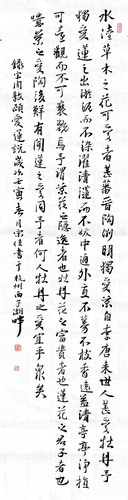 水陸草木之花可愛者甚蕃晉陶渊明獨愛菊自李唐来世人甚愛牡丹予
獨愛蓮之出淤泥而不染濯清漣而不妖中通外直不蔓不枝香遠益清亭亭淨植
可遠觀而不可褻玩焉予謂菊花之隱逸者也牡丹花之富貴者也蓮花之君子者也
噫菊之愛陶後鮮有聞蓮之愛同予者何人牡丹之愛宜乎衆矣
錄宋周敦頤愛蓮說歲次壬寅春月宗佳書于杭州西子湖畔